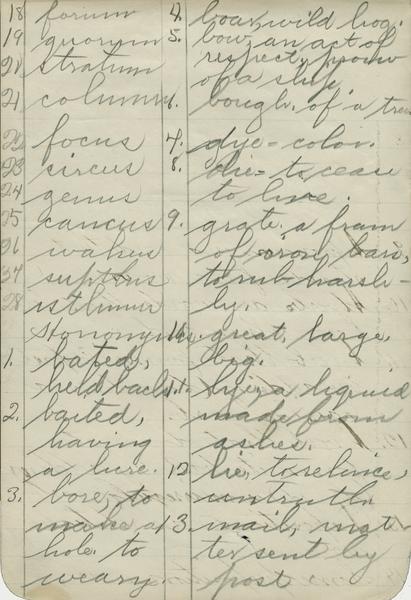 18 forum
19 quorum
20 stratum
21 column
22 focus
23 circus
24 genus
25 caucus
26 walrus
27
28 isthmus
1. bated,
held back.
2. baited,
having
a lure.
3. bore, to
make a
hole. to
weary.
4. boar, wild hog.
5. bow, an act of
respect, prow
of a ship
6. bough, of a tree
7. dye = color.
8. die = to cease
to live.
9. grate, a fram
of iron bars,
to rub harsh-
ly.
10. great, large,
big.
11. lye, a liquid
made from
ashes.
12 lie, to
untruth
13. mail, mat
ter sent by
post